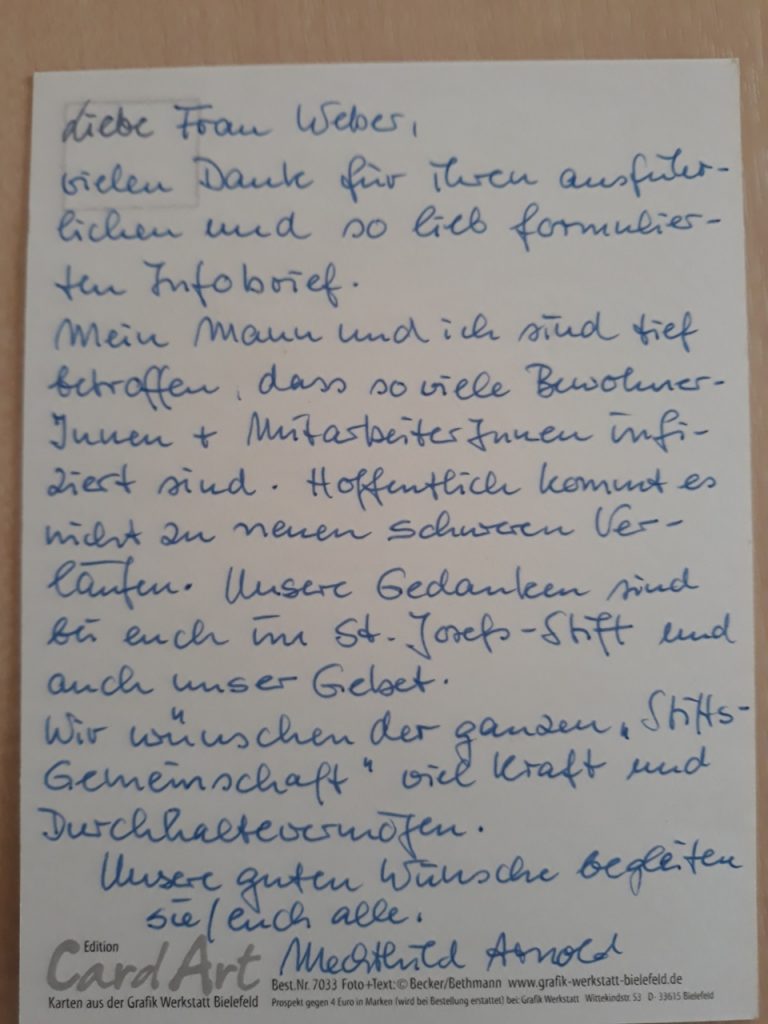 Liebe Frau Weber,
vielen Dank für Ihren ausführ-
lichen und so lieb formulier-
ten Infobrief.
Mein Mann und ich sind tief
betroffen, dass so viele Bewohner-
Innen + MitarbeiterInnen infi-
ziert sind. Hoffentlich kommt es
nicht zu neuen schweren Ver-
läufen. Unsere Gedanken sind
bei euch im St.-Josefs-Stift und
auch unser Gebet.
Wir wünschen der ganzen „Stifts-
Gemeinschaft" viel Kraft und
Durchhaltevermögen.
Unsere guten Wünsche begleiten
sie/euch alle.
Mechthild Arnold
Edition
CardArt
Karten aus der Grafik Werkstatt Bielefeld
Best.Nr. 7033 Foto+Text: © Becker/Bethmann www.grafik-werkstatt-bielefeld.de
Prospekt gegen 4 Euro in Marken (wird bei Bestellung erstattet) bei: Grafik Werkstatt Wittekindstr. 53 D- 33615 Bielefeld